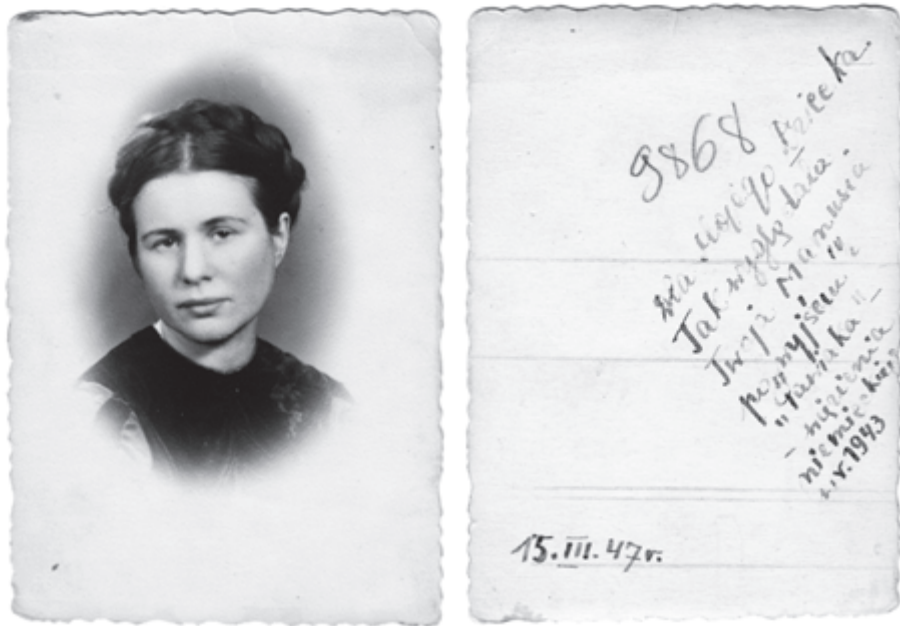 9868
Dla mojego dziecka.
Tak wyglądała
Twoja Mamusia
po wyjściu z
"Pawiaka" –
– więzienia
niemieckiego
w r. 1943
15.III.47r.